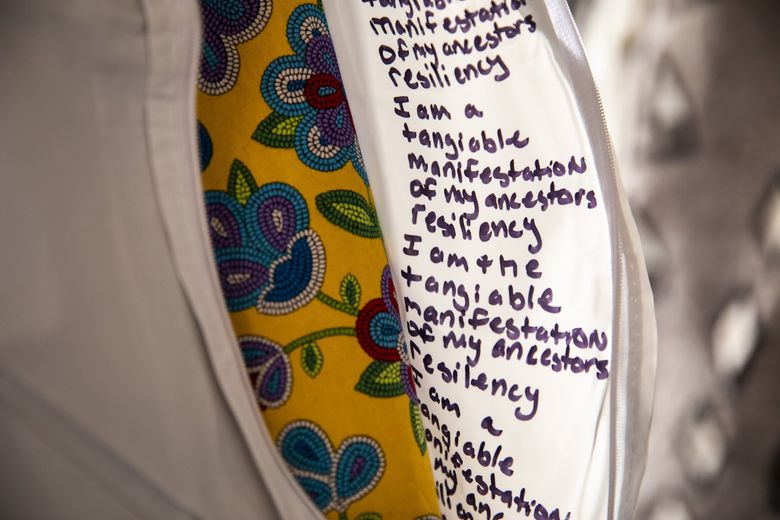 tangiable
manifestation
of my ancestors
resiliency
I am a
tangiable
manifestation
of my ancestors
resiliency
I am the
tangiable
manifestation
of my ancestors
resilency
I am a
tangiable
manifestation
my an